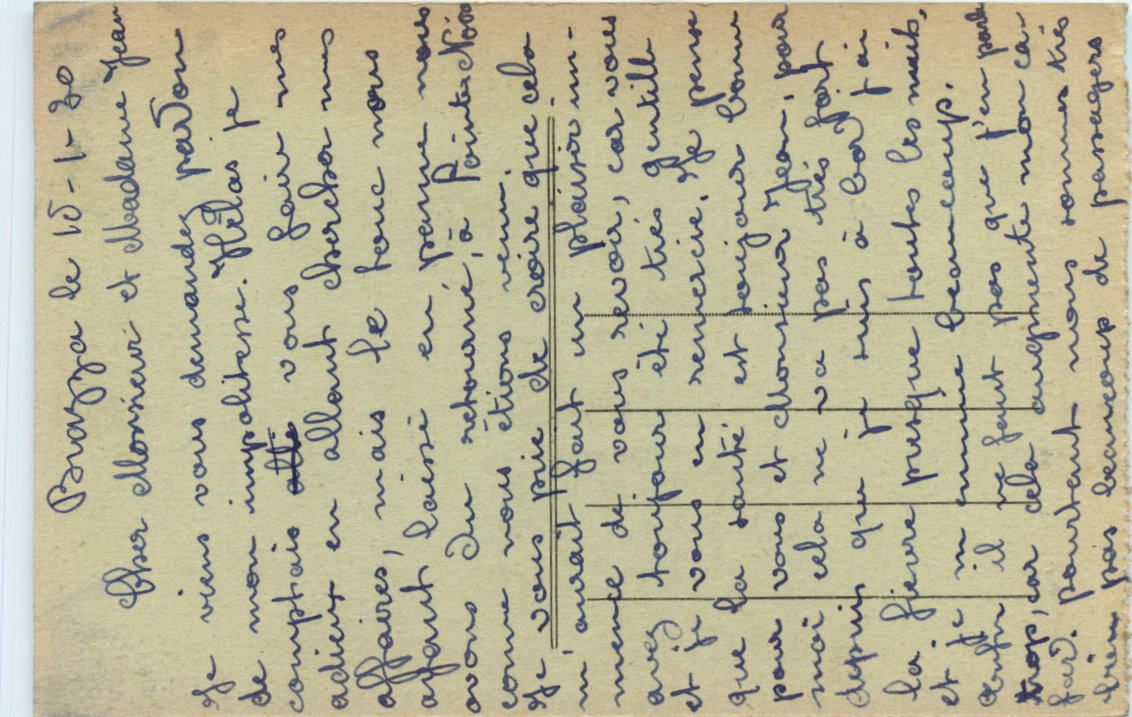 Brazza le 15-1-30
Cher Monsieur et Madame Jean
Je viens vous demandez pardon
de mon impolitesse. Hélas je
comptais vous fair mes
adieux en allant chercher mes
affaires, mais le tonc nous
ayant laissé en panne nous
avons du retourné, à Pointe Noir
comme nous étions venu.
Je vous prie de croire que cela
m'aurait fait un plaisir im-
mence de vous revoir, car vous
avez toujour été très gentille
et je vous en remercie. Je pense
que la santé est toujour bonne
pour vous et Monsieur Jean, pour
moi cela ne va pas très fort
depuis que je suis à bord j'ai
la fievre presque toutes les nuits,
et je m'ennuie beaucoup.
Enfin il ne faut pas que j'en parle
trop, car cela augmente mon ca-
fard. pourtant nous sommes très
bien pas beaucoup de passagers